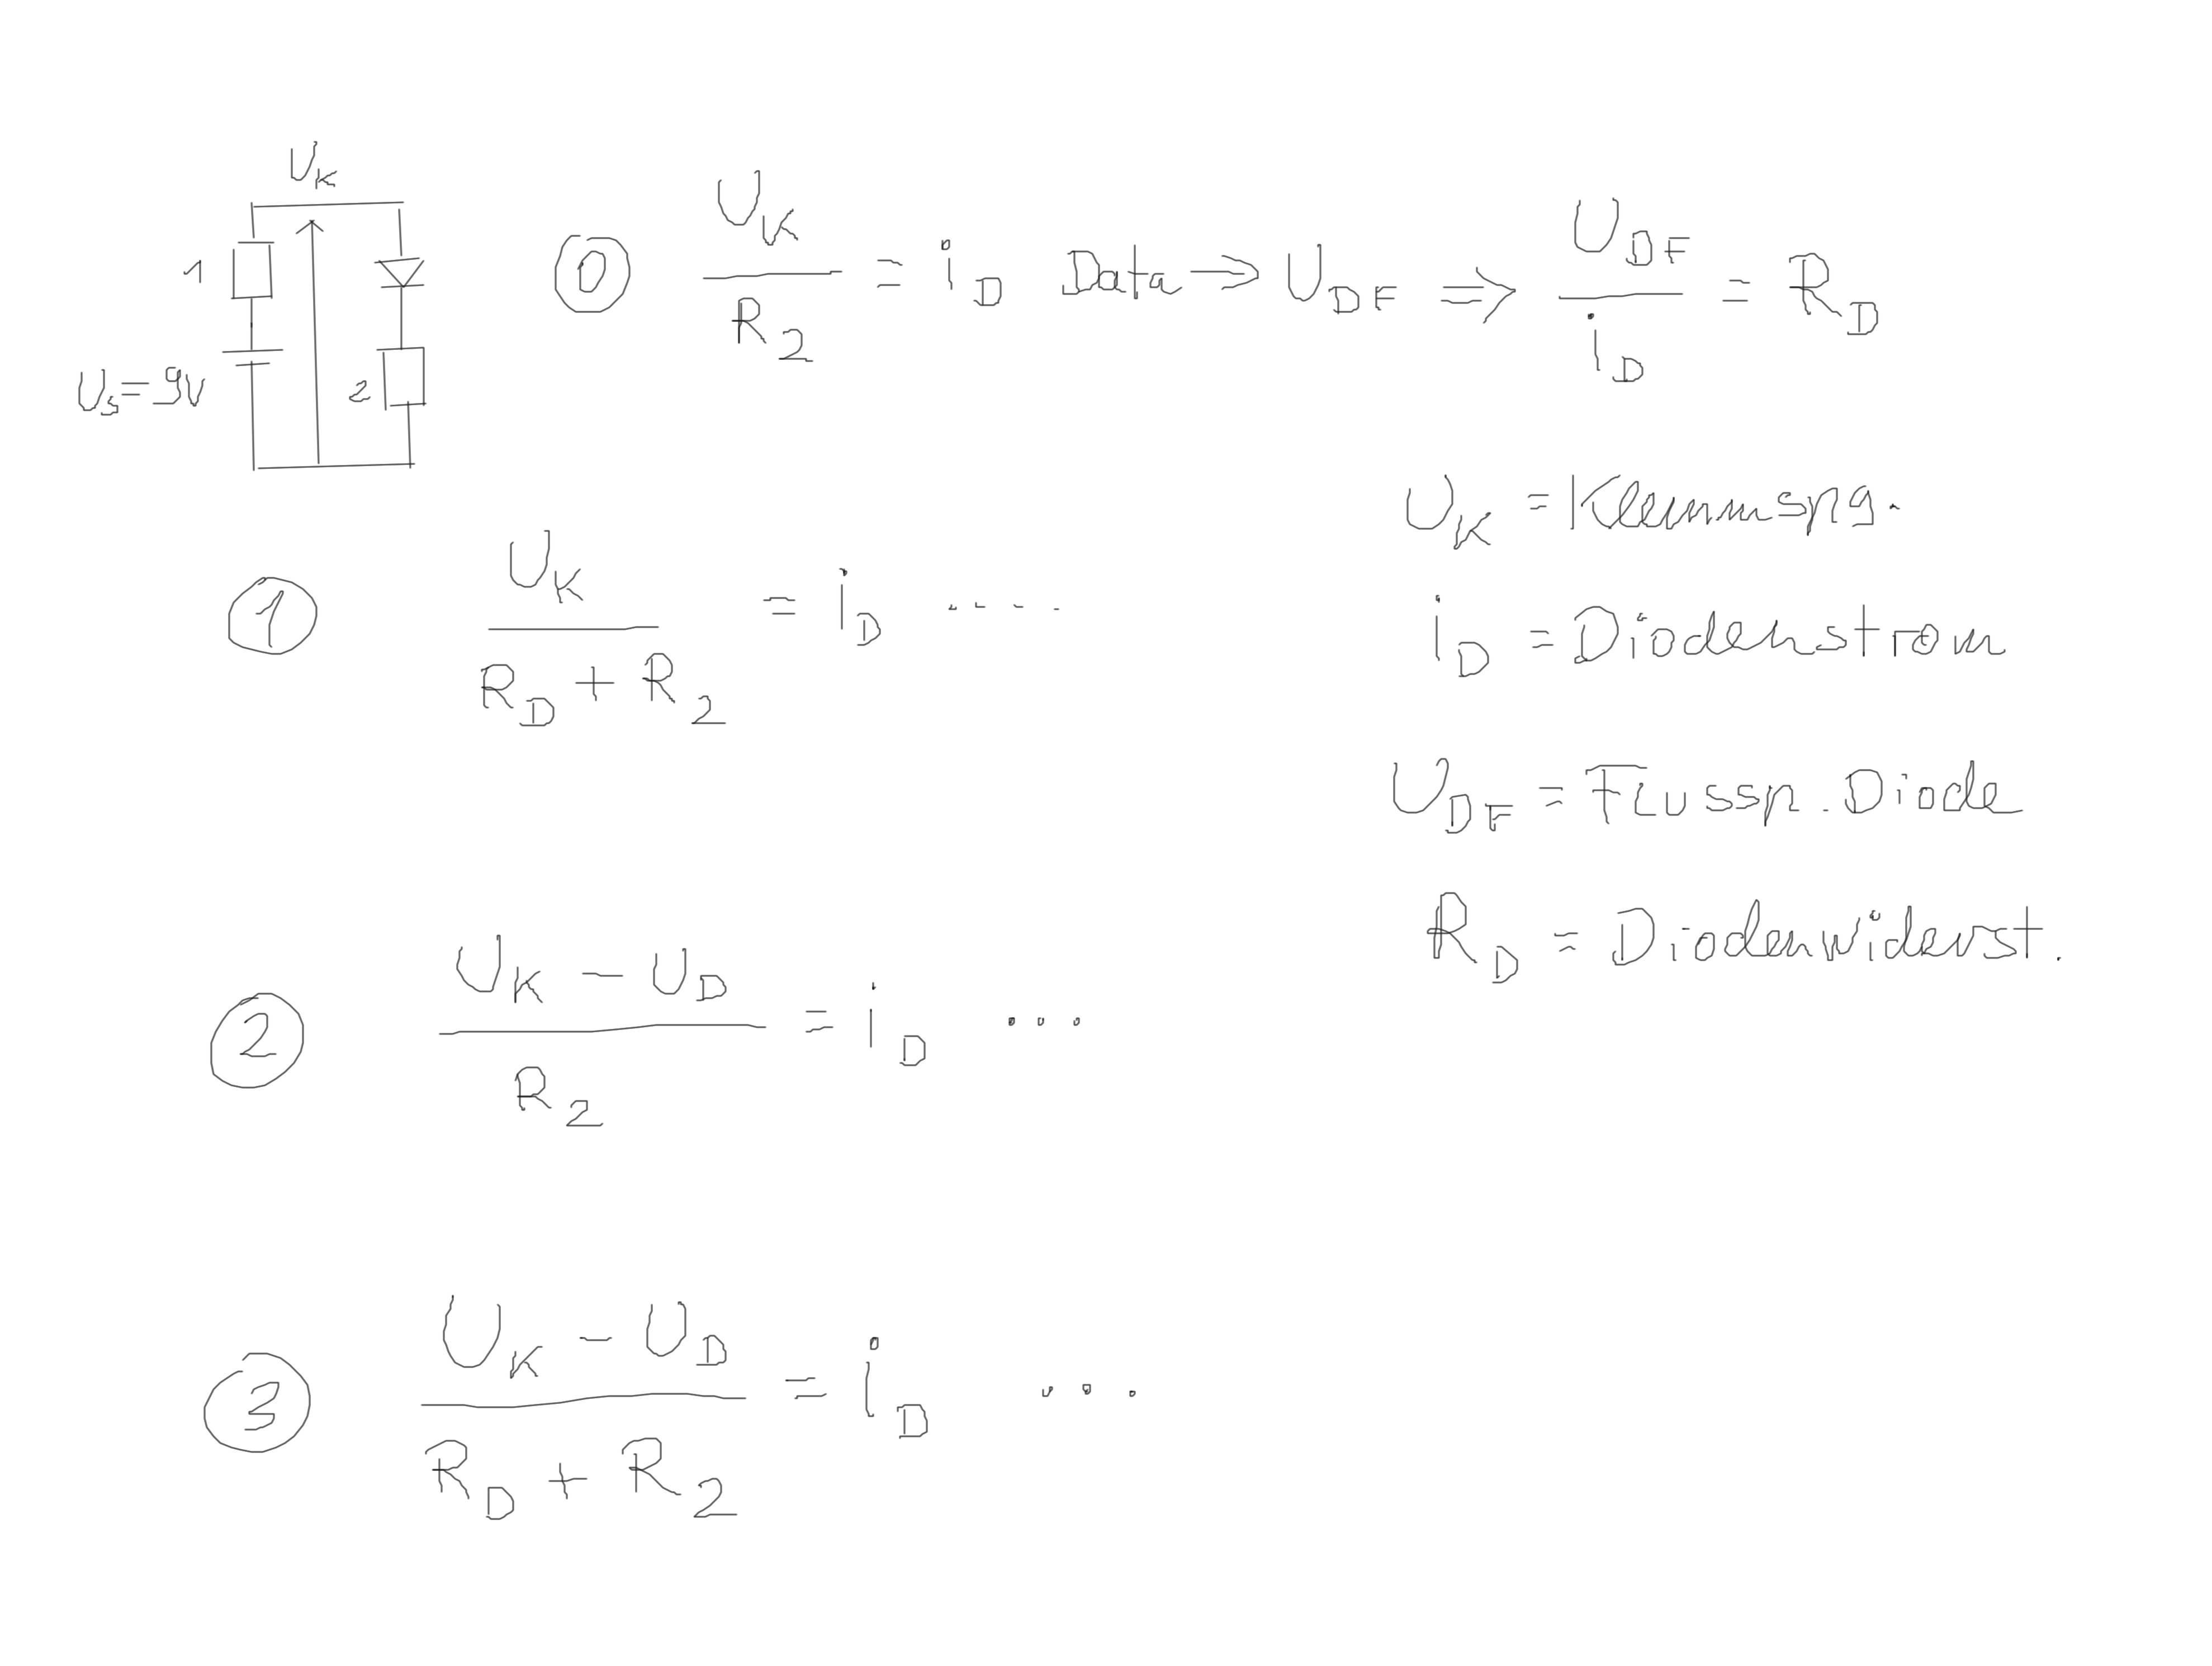 U_K
1
U_S = 9V
2
0 U_K / R_2 = i_D Data → U_DF ⇒ U_DF / i_D = R_D
U_K = Klemmspg.
1 U_K / (R_D + R_2) = i_D ....
i_D = Diodenstrom
U_DF = Flussp. Diode
R_D = Diodenwiderst.
2 (U_K - U_D) / R_2 = i_D ...
3 (U_K - U_D) / (R_D + R_2) = i_D ...